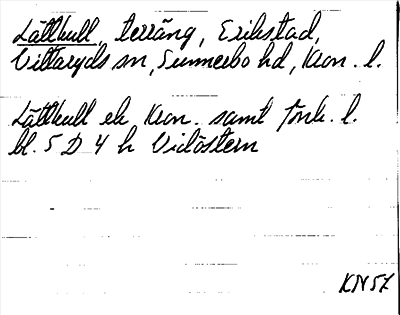 Lättkull, terräng, Erikstad,
Vittaryds sn, Sunnerbo hd, Kron. l.
Lättkull ek Kron. samt Jönk. l.
bl. 5 D 4 h Vidöstern
KN57